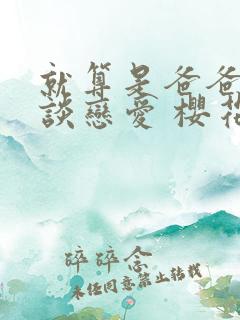 就算是爸爸
談戀愛 櫻花
碎碎念
未经同意禁止转载